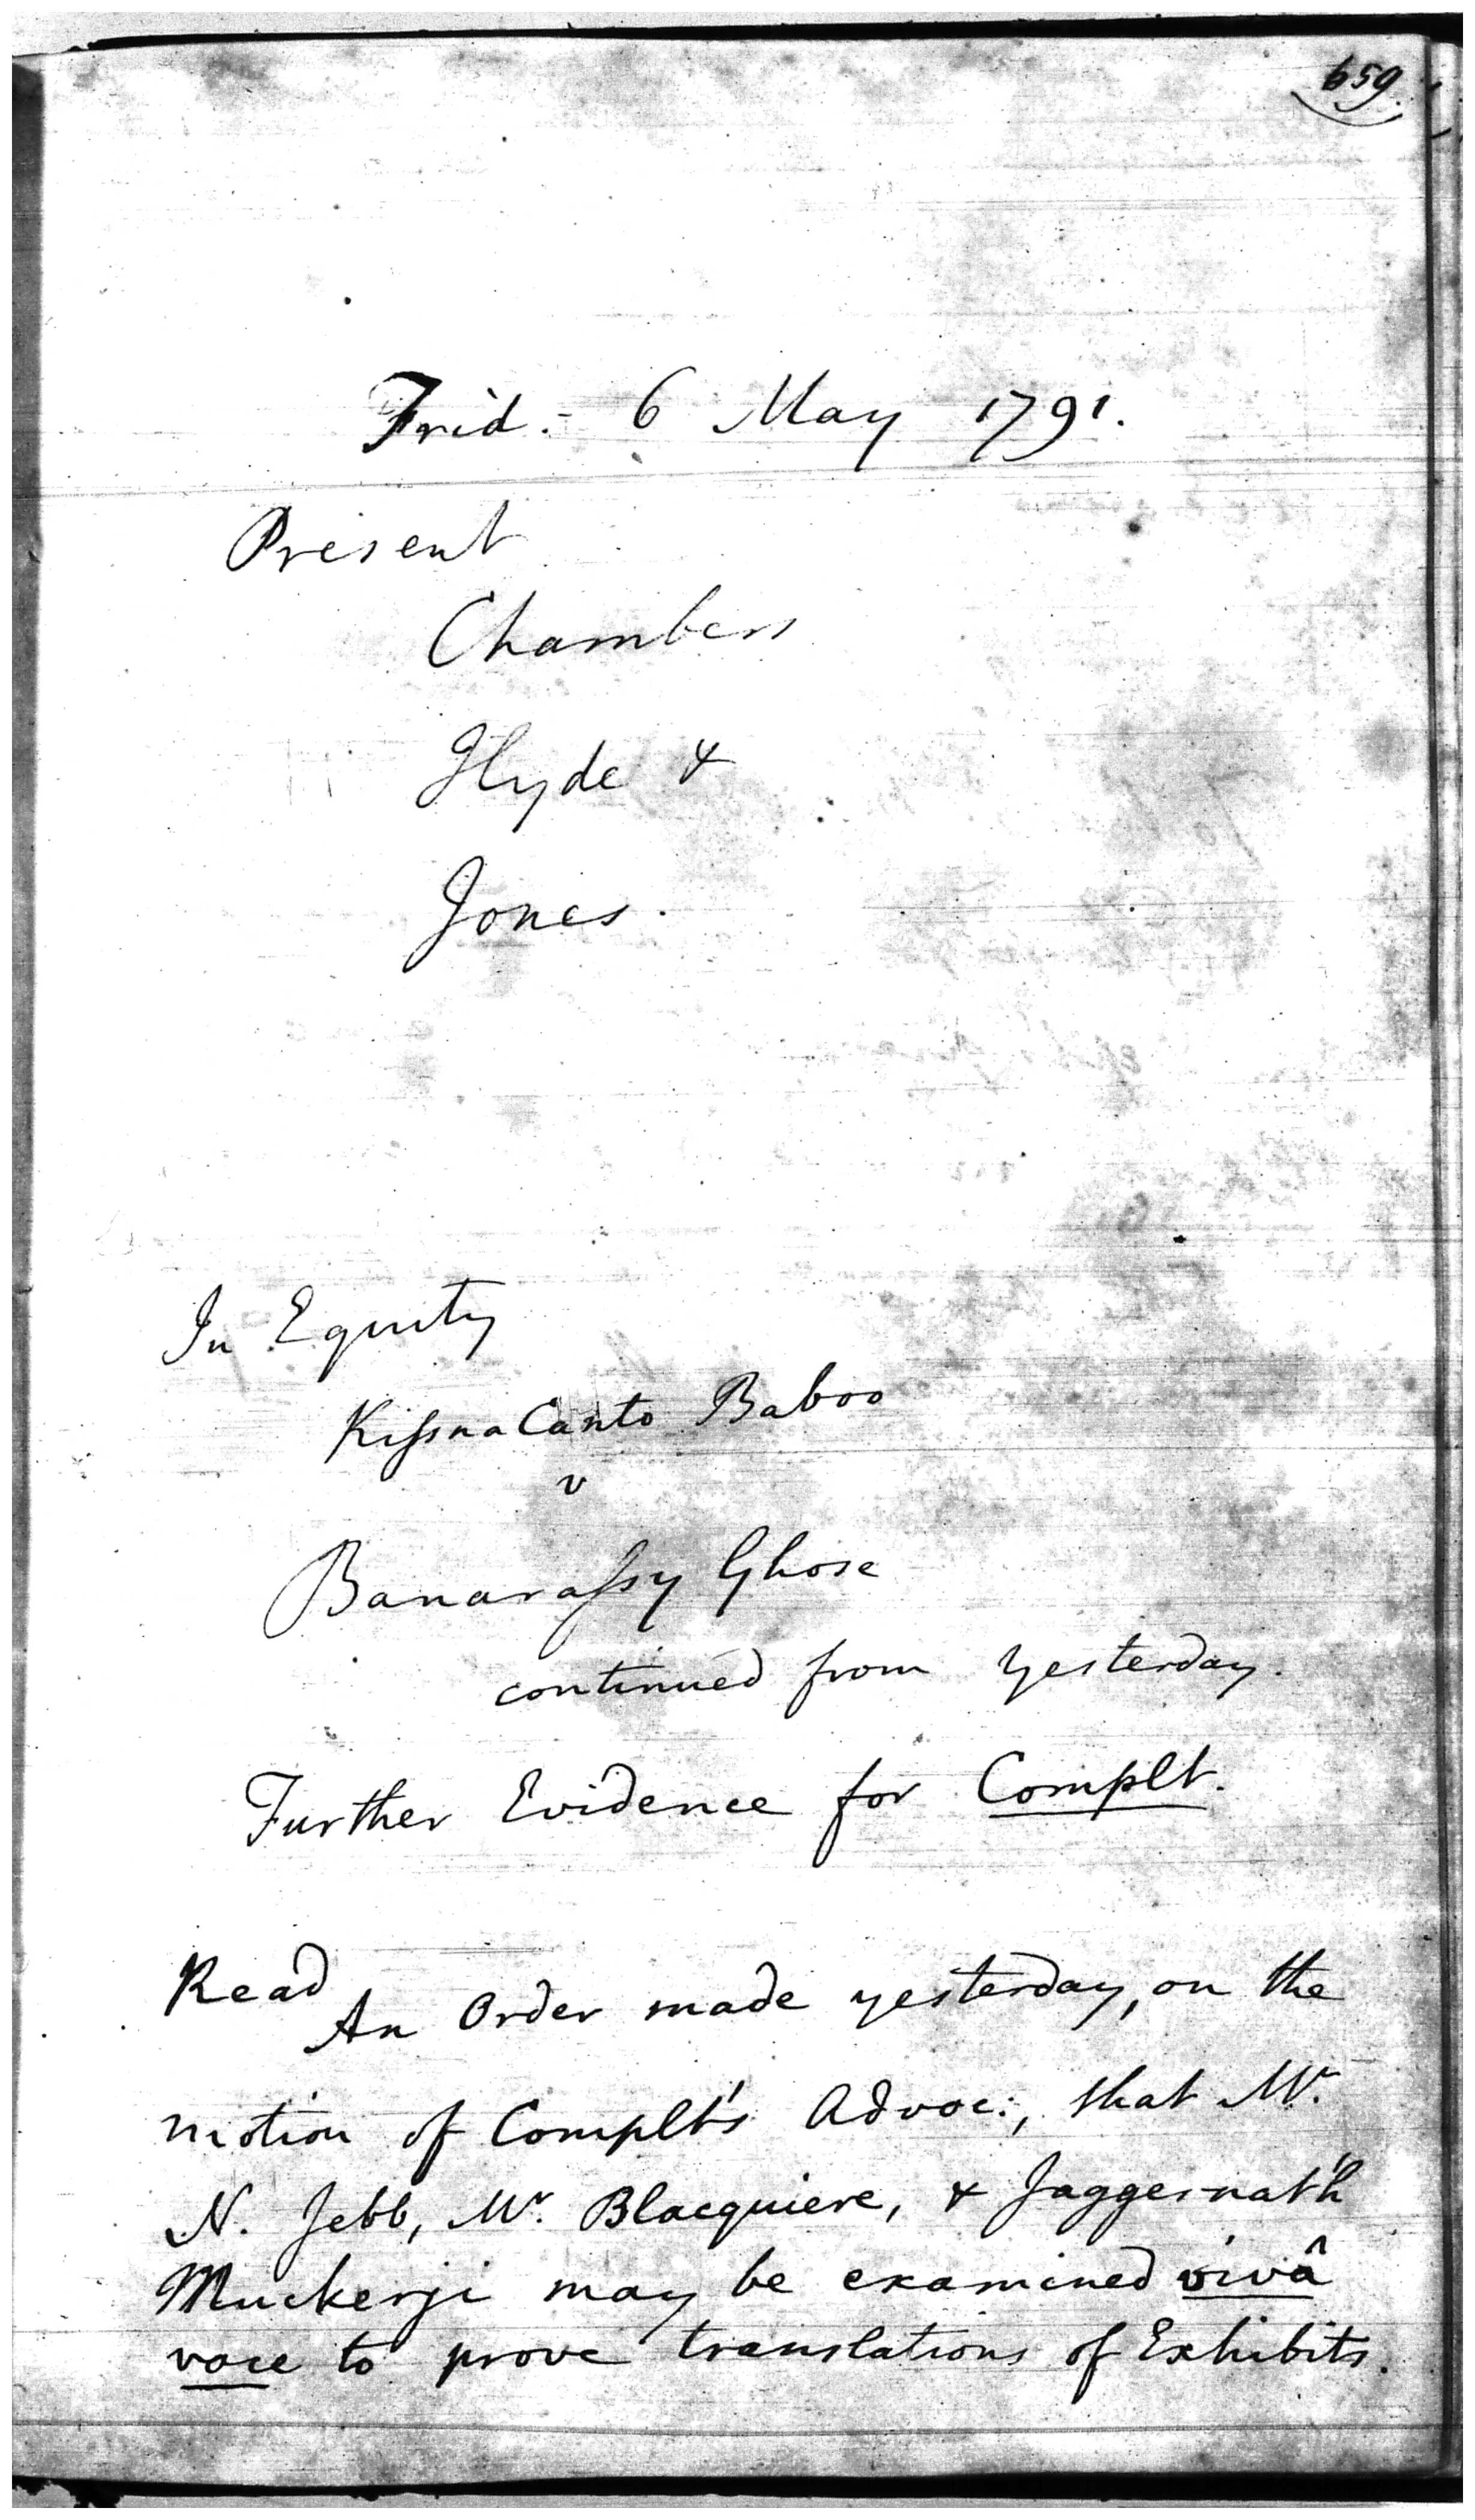 659
Frid:- 6 May 1791.
Present
Chambers
Hyde &
Jones.
In Equity
Kiſsna Canto Baboo
v
Banaraſsy Ghose
continued from yesterday.
Further Evidence for Complt.
Read
An Order made yesterday, on the
motion of Complt's Advoc:, that Mr.
N. Jebb, Mr. Blacquiere, & Jaggernath
Muckerji may be examined vivâ
voce to prove translations of Exhibits.